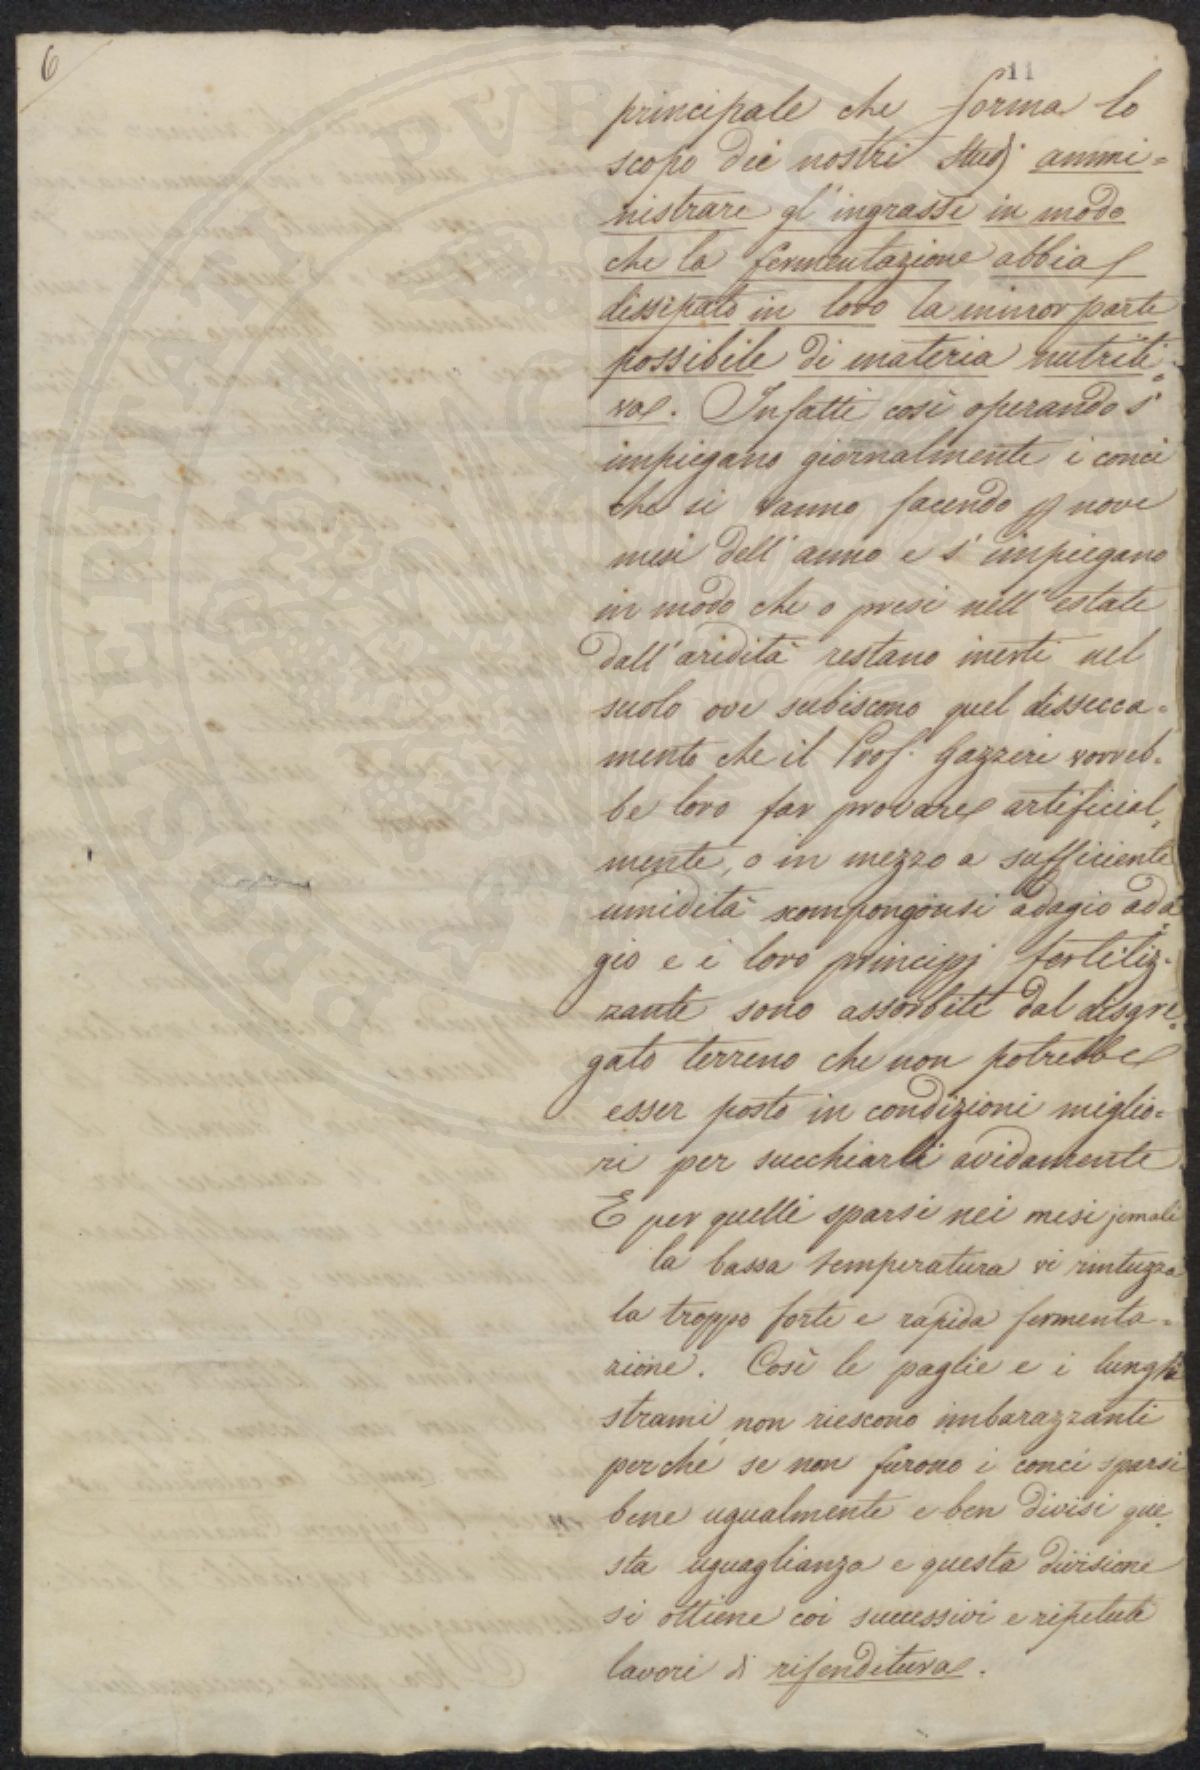 6
11
principale che forma lo
scopo dei nostri studj ammi=
nistrare gl'ingrassi in modo
che la fermentazione abbia
dissipato in loro la minor parte
possibile di materia nutriti=
va. Infatti così operando s'
impiegano giornalmente i conci
che si vanno facendo p nove
mesi dell'anno e s'impiegano
in modo che o presi nell'estate
dall'aridità restano inerti nel
suolo ove subiscono quel dissecca=
mento che il Prof. Gazzeri vorreb=
be loro far provare artificial=
mente, o in mezzo a sufficiente
umidità scompongonsi adagio ada=
gio e i loro principj fertiliz=
zanti sono assorbiti dal disgre=
gato terreno che non potrebbe
esser posto in condizioni miglio=
ri per succhiarli avidamente
E per quelli sparsi nei mesi jemali
la bassa temperatura vi rintuzza
la troppo forte e rapida fermenta=
zione. Così le paglie e i lunghi
strami non riescono imbarazzanti
perché se non furono i conci sparsi
bene ugualmente e ben divisi que=
sta uguaglianza e questa divisione
si ottiene coi successivi e ripetuti
lavori di rifenditura.
PERITATI PVBLICAE